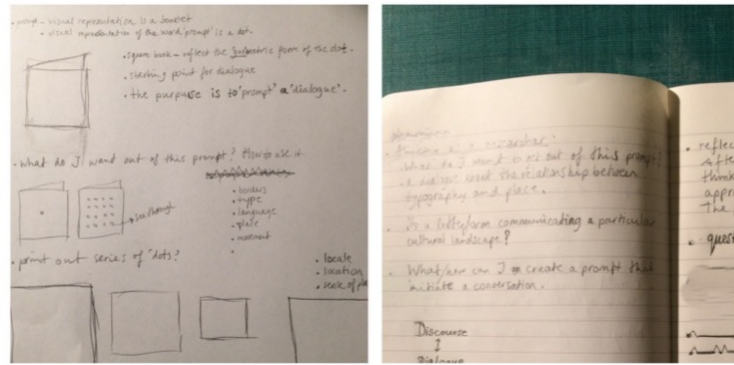 prompt - visual representation is a booklet
visual representation of the word 'prompt' is a dot.
square book - reflect the geometric form of the dot.
starting point for dialogue
the purpose is to 'prompt' a 'dialogue'.
What do I want out of this prompt? How to use it
borders
type
language
place
movement
see through
print out series of 'dots'?
locale
location
sense of pla
What do I want to get out of this prompt?
A dialogue about the relationship between
typography and place.
Is a letterform communicating a particular
cultural landscape?
What/how can I create a prompt that
initiate a conversation.
Discourse
Dialogue
reflec
After
think
appr
The
quest